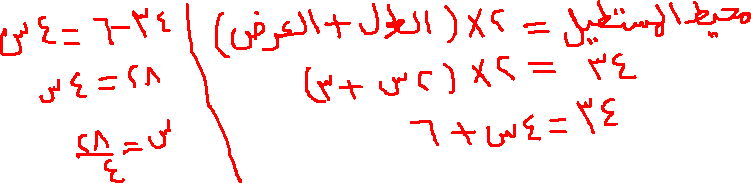 محيط المستطيل = ٢×(الطول + العرض)
٣٤ = ٢×(٢س + ٣)
٣٤ = ٤س + ٦
٣٤-٦ = ٤س
٢٨ = ٤س
س = ٢٨/٤